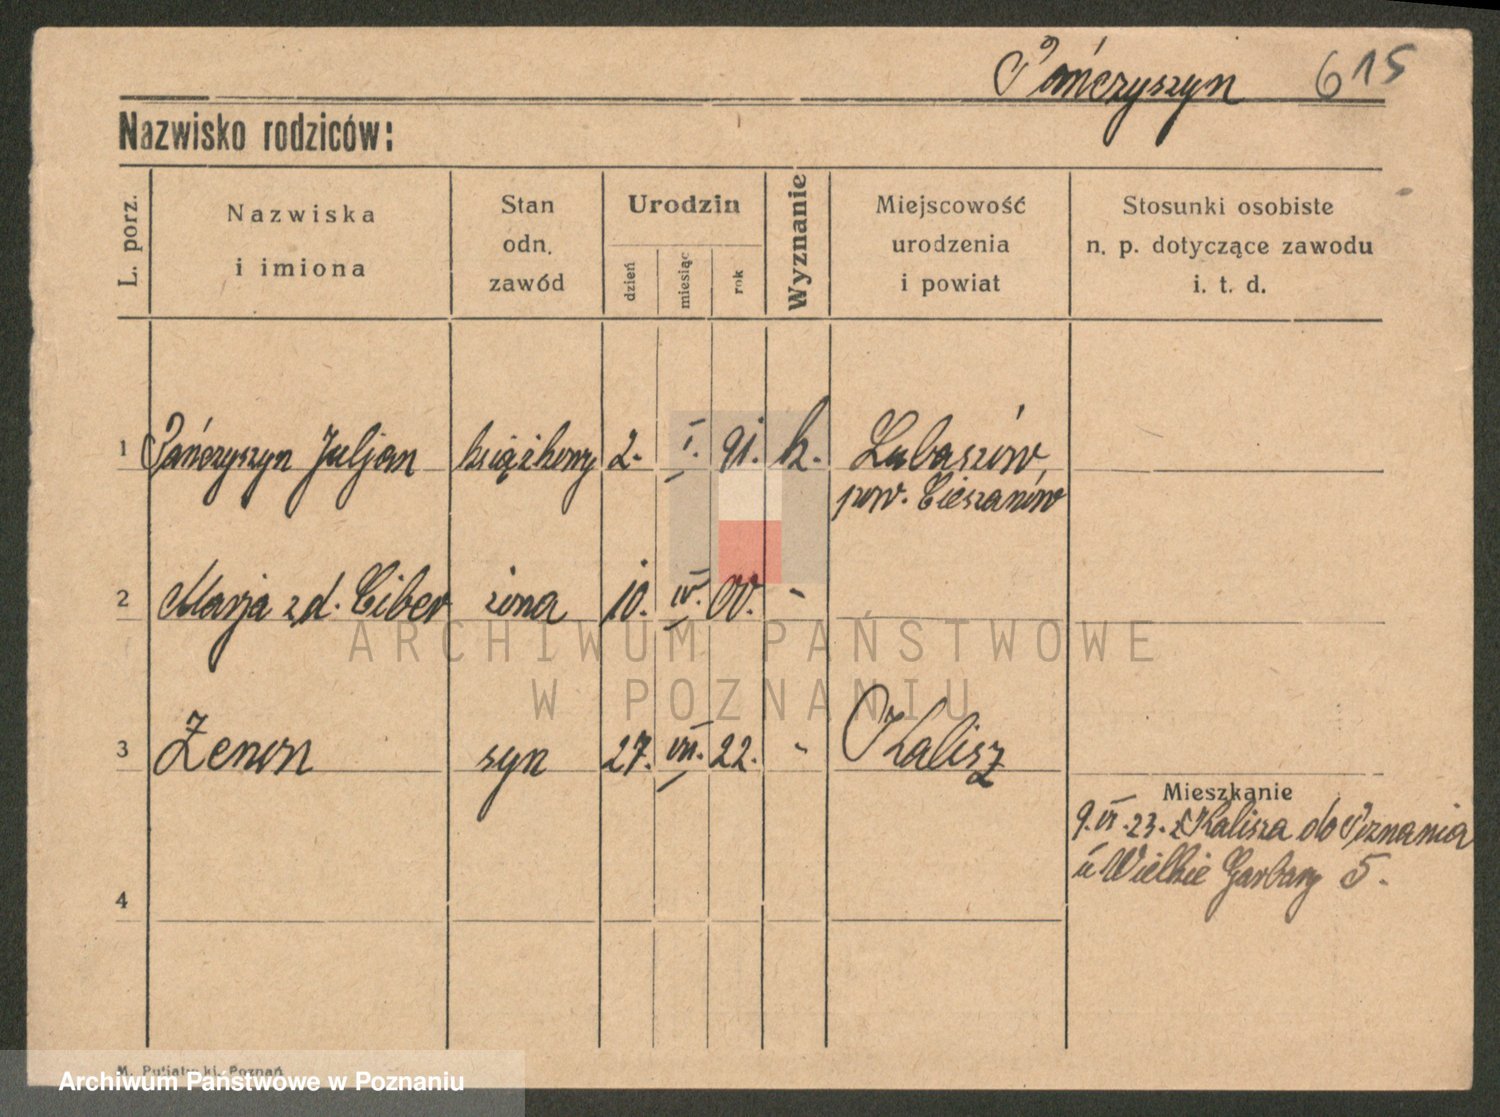 Pańczyszyn 615
Nazwisko rodziców:
L. porz.
Nazwiska
i imiona
Stan
odn.
zawód
Urodzin
dzień
miesiąc
rok
Wyznanie
Miejscowość
urodzenia
i powiat
Stosunki osobiste
n. p. dotyczące zawodu
i. t. d.
1 Pańczyszyn Juljan książkowy 2. I. 91. k. Lubaszów,
pow. Cieszanów
2 Marja z d. Ciber żona 10. IV. 00. -
3 Zenon syn 27. VII. 22. - Kalisz
Mieszkanie
9. VI. 23. z Kalisza do Poznania
u Wielkie Garbary 5.
4
ARCHIWUM PAŃSTWOWE
W POZNANIU
Poznań
Archiwum Państwowe w Poznaniu